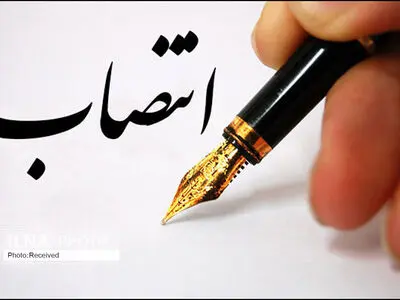 انتصاب
ILNA
Photo:Received